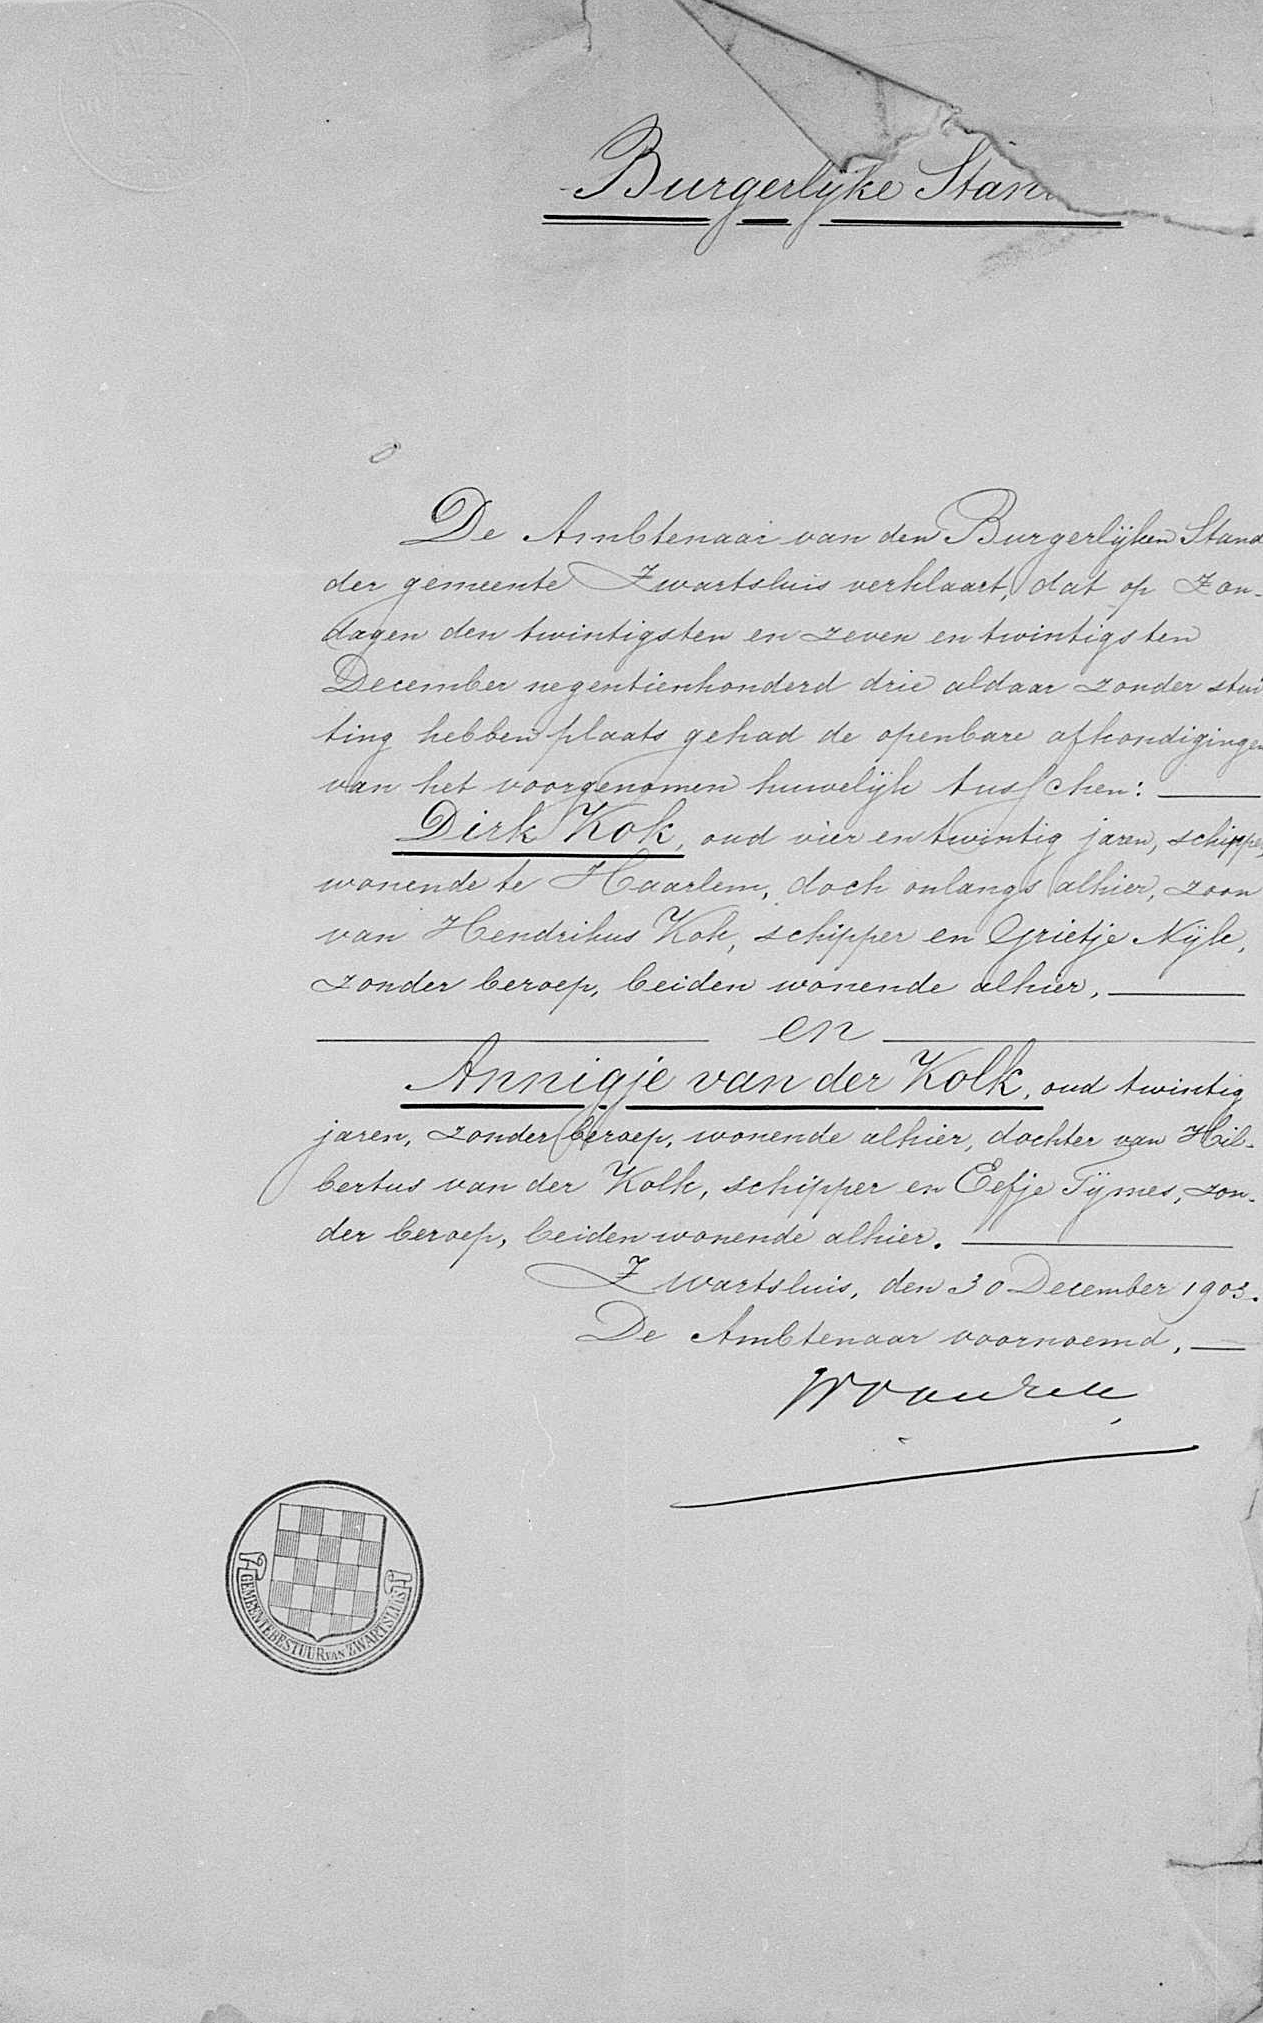 Burgerlijke Stan
De Ambtenaar van den Burgerlijken Stand
der gemeente Zwartsluis verklaart, dat op Zon-
dagen den twintigsten en zeven en twintigsten
December negentienhonderd drie aldaar zonder stui
ting hebben plaats gehad de openbare afkondigingen
van het voorgenomen huwelijk tusschen:
Dirk Kok, oud vier en twintig jaren, schipper,
wonende te Haarlem, doch onlangs alhier, zoon
van Hendrikus Kok, schipper en Grietje Nijk,
zonder beroep, beiden wonende alhier,
en
Annigje van der Kolk, oud twintig
jaren, zonder beroep, wonende alhier, dochter van Hil-
bertus van der Kolk, schipper en Eefje Tijmes, zon-
der beroep, beiden wonende alhier.
Zwartsluis, den 30 December 1903.
De Ambtenaar voornoemd,
GEMEENTEBESTUUR VAN ZWARTSLUIS